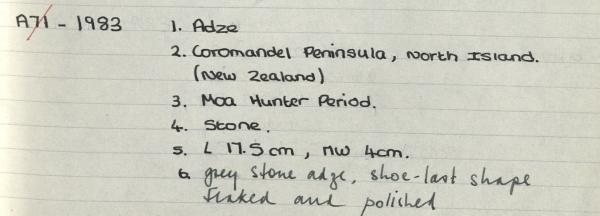 A71 - 1983 1. Adze
2. Coromandel Peninsula, North Island.
(New Zealand)
3. Moa Hunter Period.
4. Stone.
5. L 17.5 cm, MW 4cm.
6. grey stone adze, shoe-last shape
flaked and polished